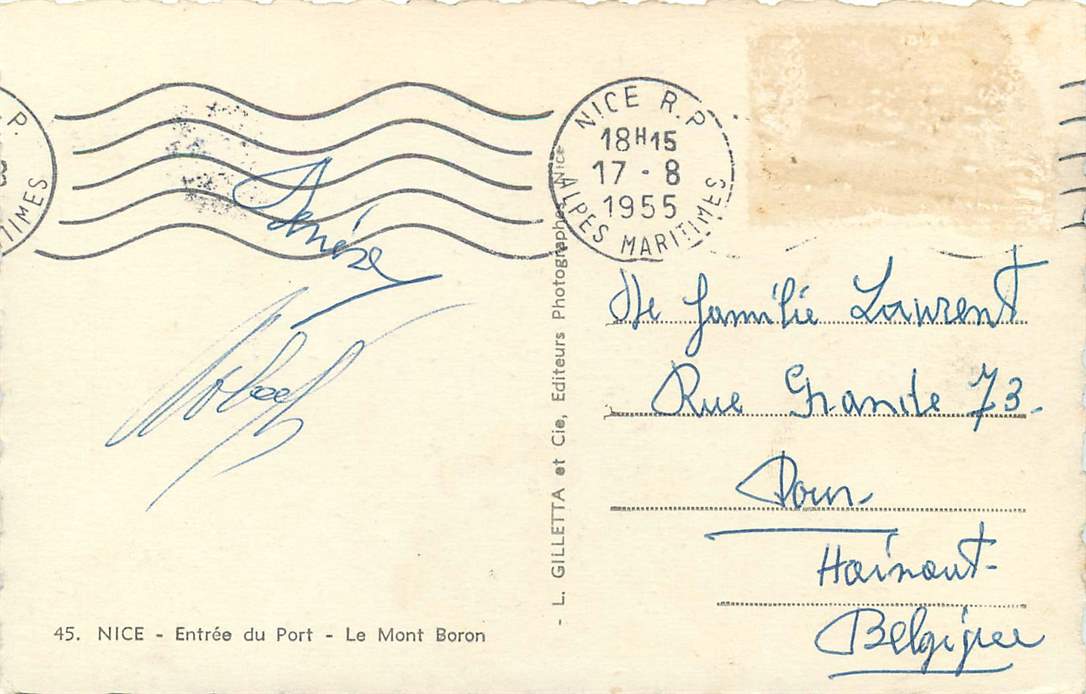 NICE R.P
18H15
17 - 8
1955
ALPES MARITIMES
P.
TIMES
famille Laurent
Rue Grande 73.
Dour
Hainaut-
Belgique
- L. GILLETTA et Cie, Editeurs Photographes, Nice
45. NICE - Entrée du Port - Le Mont Boron